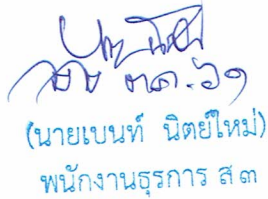 ตค.๖๑
(นายเบนท์ นิตย์ใหม่)
พนักงานธุรการ ส ๓